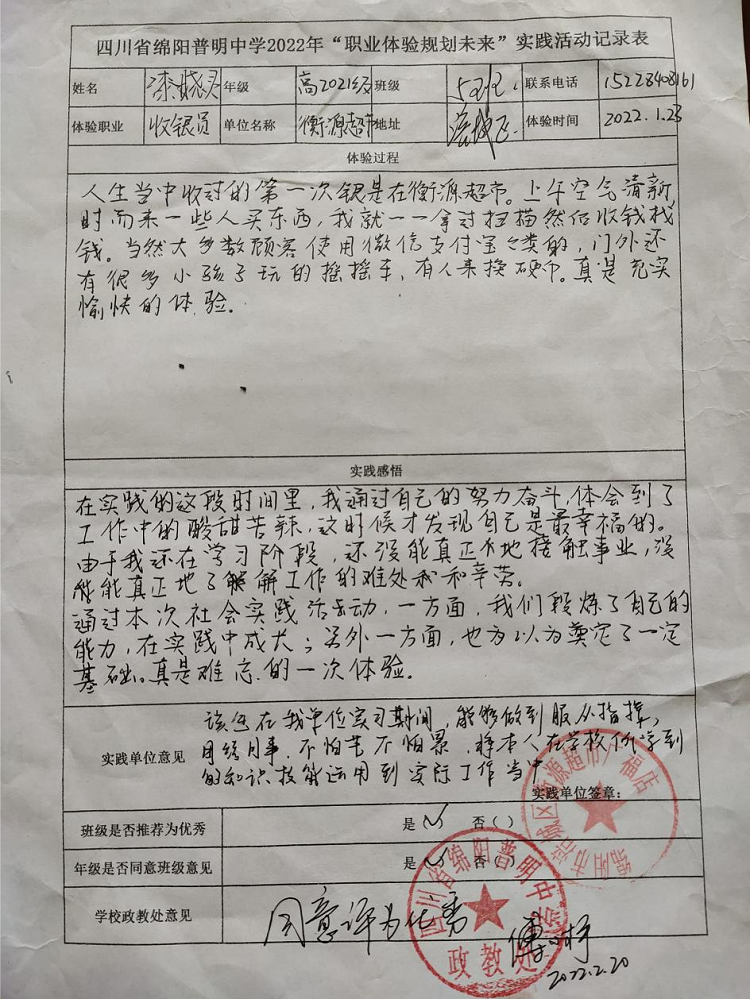 四川省绵阳普明中学2022年“职业体验规划未来”实践活动记录表
姓名 漆姣灵 年级 高2021级 班级 5班 联系电话 15228408161
体验职业 收银员 单位名称 衡源超市 地址 涪城区 体验时间 2022.1.23
体验过程
人生当中收过的第一次银是在衡源超市。上午空气清新
时而来一些人买东西,我就一一拿过扫描然后收钱找
钱。当然大多数顾客使用微信支付宝之类的,门外还
有很多小孩子玩的摇摇车,有人来换硬币。真是充实
愉快的体验。
实践感悟
在实践的这段时间里,我通过自己的努力奋斗,体会到了
工作中的酸甜苦辣,这时候才发现自己是最幸福的。
由于我还在学习阶段,还没能真正地接触事业,没
能真正地了解工作的难处和辛劳。
通过本次社会实践活动,一方面,我们锻炼了自己的
能力,在实践中成长;另外一方面,也为以为奠定了一定
基础。真是难忘的一次体验。
实践单位意见
该生在我单位实习期间,能够做到服从指挥,
团结同事,不怕苦不怕累,将本人在学校所学到
的知识技能运用到实际工作当中
实践单位签章:
绵阳市涪城区衡源超市广福店
班级是否推荐为优秀 是(√) 否( )
年级是否同意班级意见 是(√) 否( )
学校政教处意见 同意评为优秀
四川省绵阳普明中学
政教处
2022.2.20